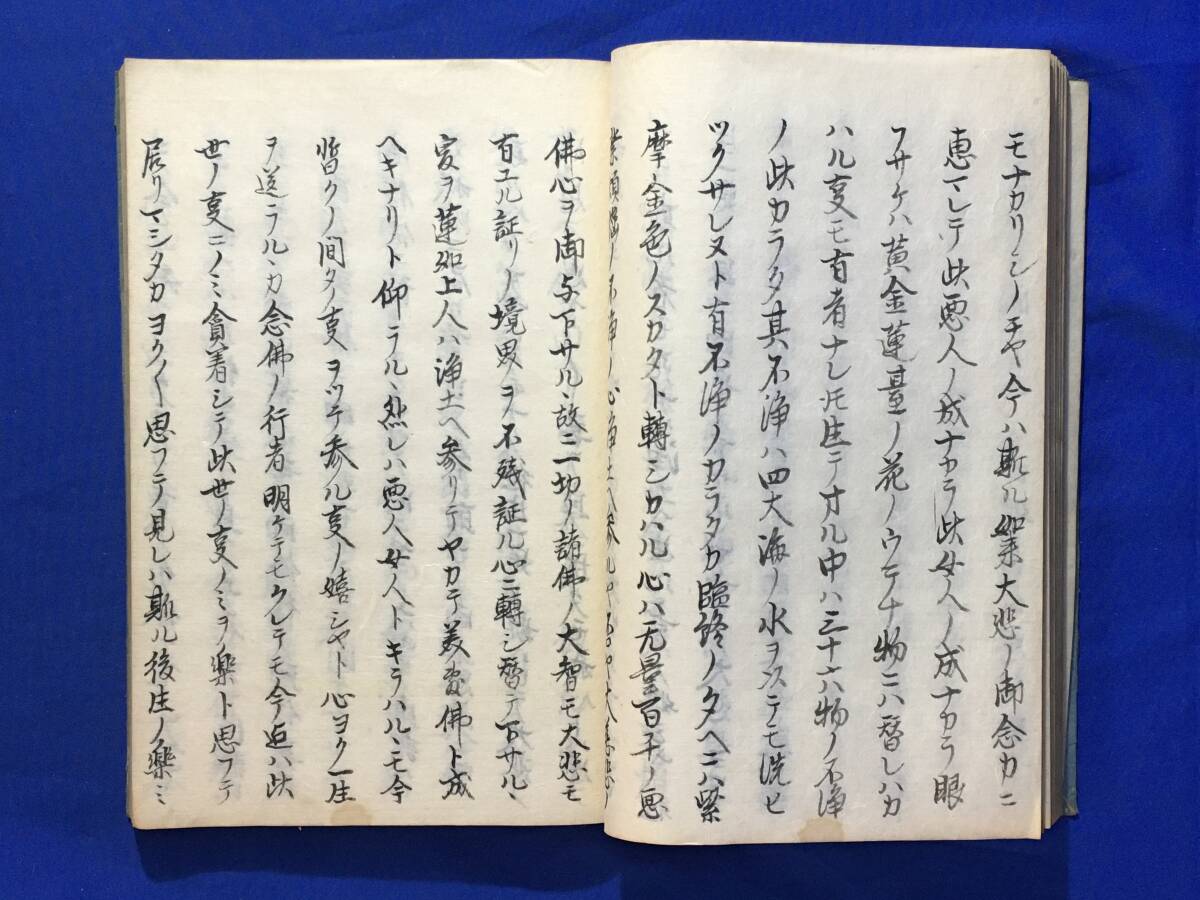 モナカリシノチヤ今ハ斯ル如来大悲ノ御念力ニ
恵マレテ此悪人ノ成ナカラ此女人ノ成ナカラ眼
フサケハ黄金蓮臺ノ花ノウテナ物ニハ替レハカ
ハル叓モ有者ナレ𪜈生テオル中ハ三十六物ノ不浄
ノ此カラタ其不浄ハ四大海ノ水ヲ以テモ洗ヒ
ツクサレヌト有不浄ノカラタカ臨終ノタヘニハ紫
摩金色ノスカタト轉シカハル心ハ无量百千ノ悪
佛心ヲ御与下サルヽ故ニ一切ノ諸佛ノ大智モ大悲モ
百ヱル証リノ境界ヲ不残証ル心ニ轉シ替テ下サルヽ
変ヲ蓮如上人ハ浄土ヘ参リテヤカテ弥陀佛ト成
ヘキナリト仰ラルヽ然レハ悪人女人ヘトキラハルヽモ今
暫クノ間タノ叓ヲツテ参ル叓ノ嬉シヤト心ヨク一生
ヲ送ラルヽカ念佛ノ行者明ケテモクレテモ今迠ハ此
世ノ叓ニノミ貪着シテ此世ノ叓ノミヲ樂ト思フテ
居リマシタカヨク〱思フテ見レハ斯ル後生ノ樂ミ